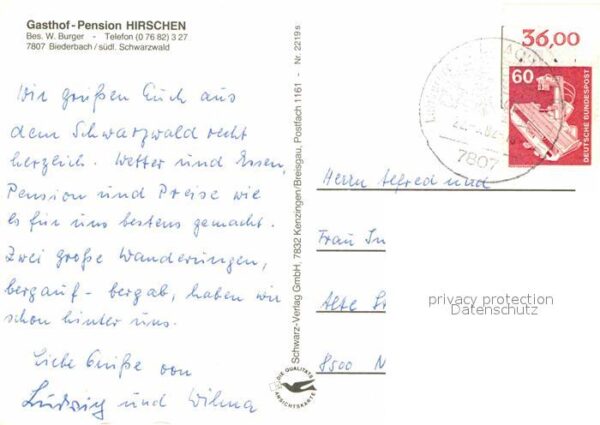 Gasthof-Pension HIRSCHEN
Bes. W. Burger - Telefon (0 76 82) 3 27
7807 Biederbach/südl. Schwarzwald
Wir grüßen Euch aus
dem Schwarzwald recht
herzlich. Wetter und Essen,
Pension und Preise wie
es für uns bestens gemacht.
Zwei große Wanderungen,
bergauf - bergab, haben wir
schon hinter uns.
Liebe Grüße von
Ludwig und Wilma
Schwarz-Verlag GmbH, 7832 Kenzingen/Breisgau, Postfach 1161 - Nr. 2219 s
DIE QUALITÄTS
ANSICHTSKARTE
36,00
60
DEUTSCHE BUNDESPOST
7807
Herrn Alfred und
Frau In
Alte St
8500 N
privacy protection
Datenschutz